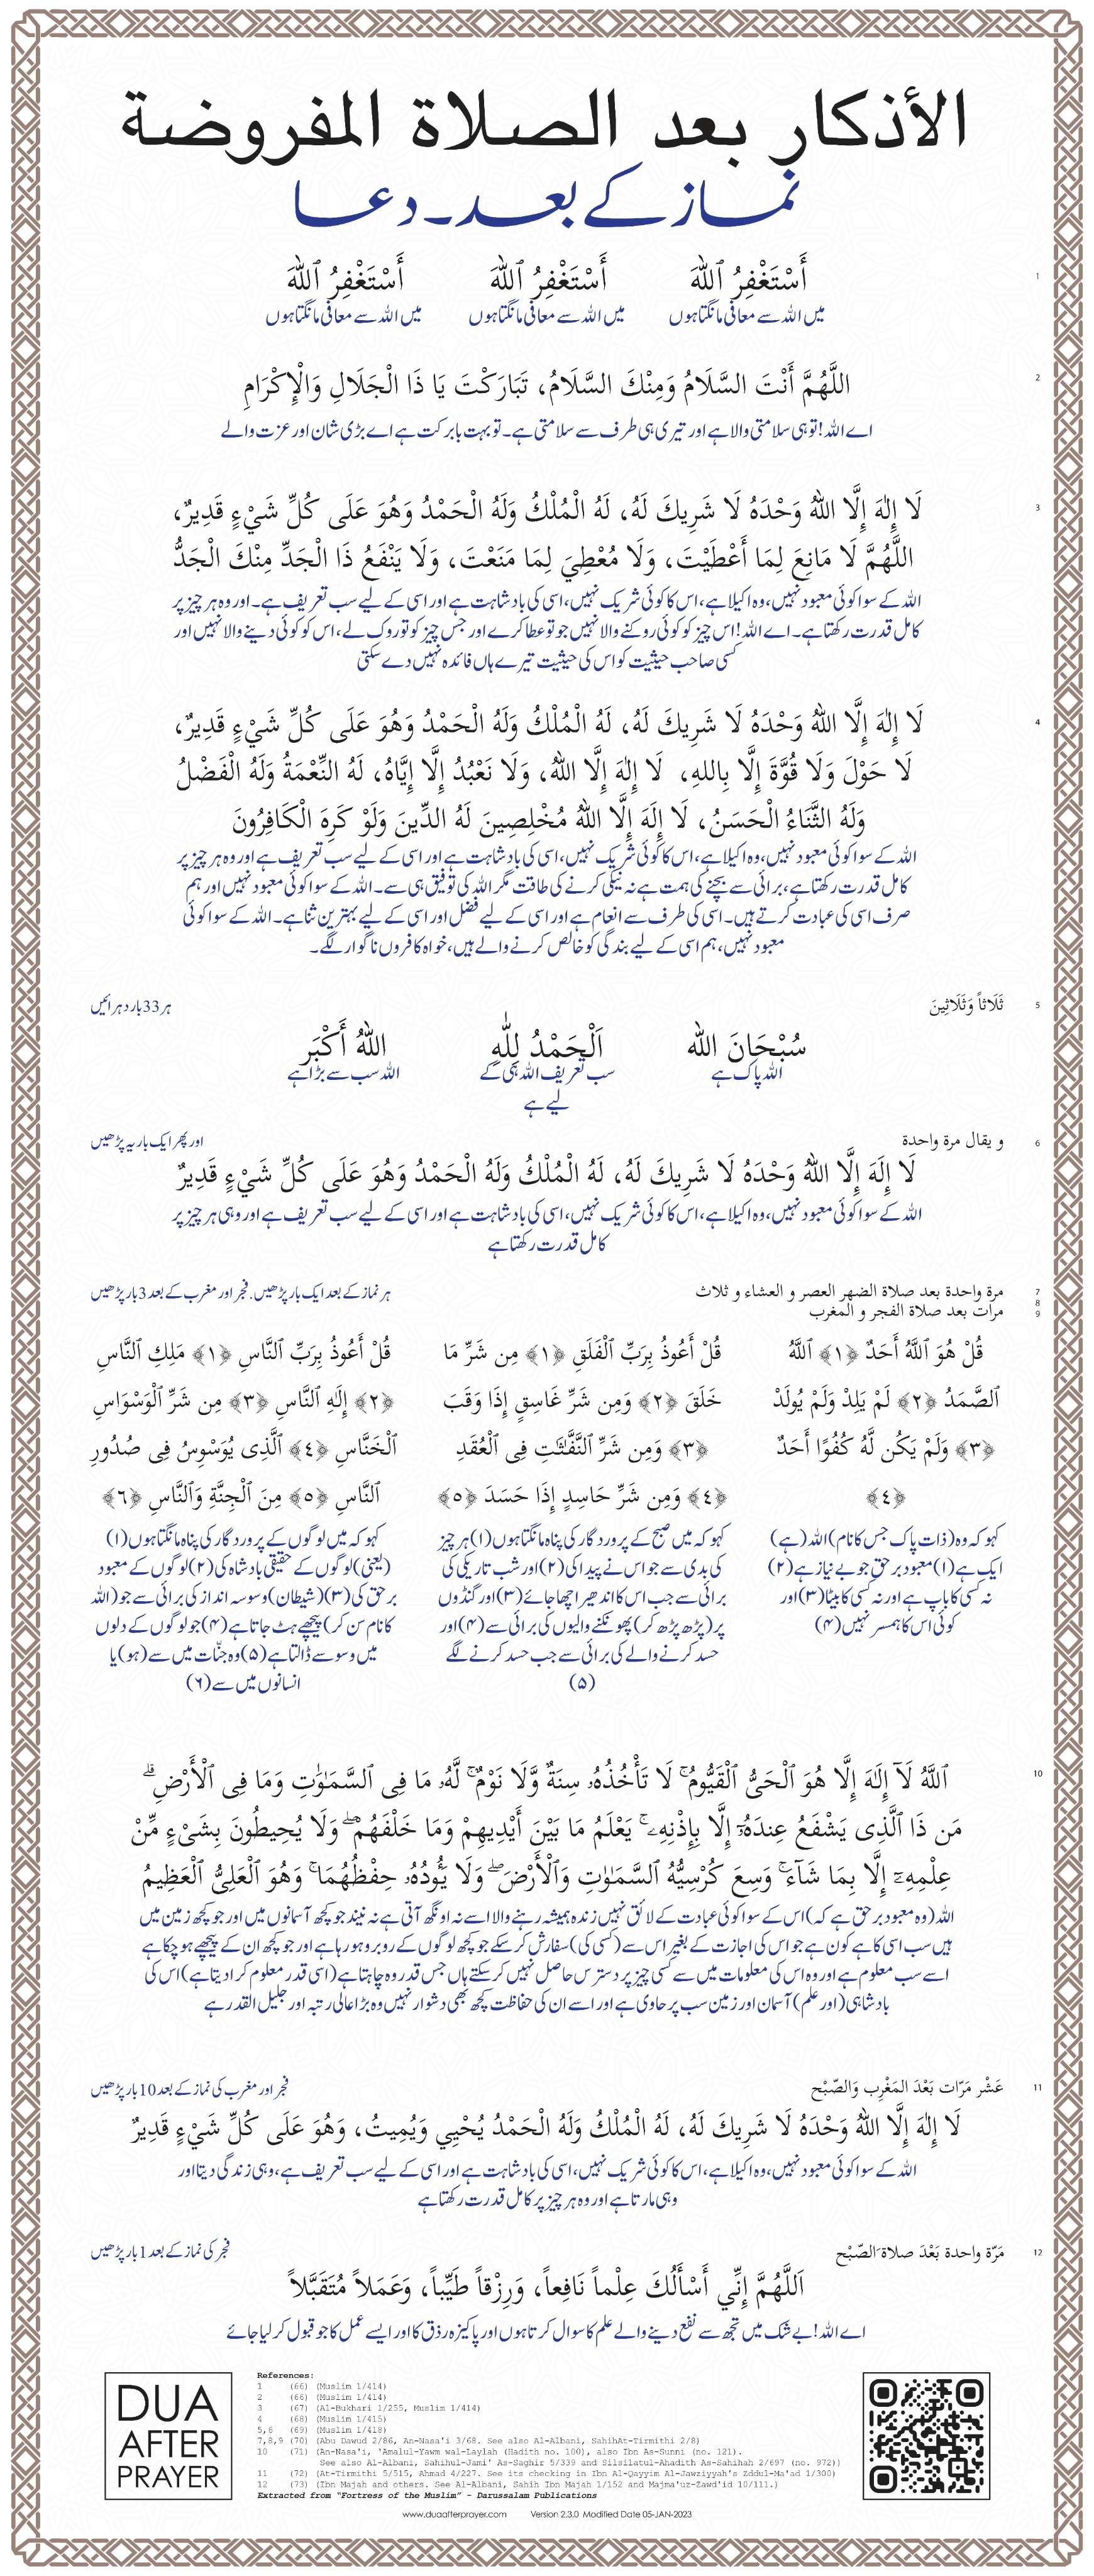 الأذكار بعد الصلاة المفروضة
نماز کے بعد۔دعا
1
أَسْتَغْفِرُ ٱللّٰهَ أَسْتَغْفِرُ ٱللّٰهَ أَسْتَغْفِرُ ٱللّٰهَ
میں اللہ سے معافی مانگتا ہوں میں اللہ سے معافی مانگتا ہوں میں اللہ سے معافی مانگتا ہوں
2
اللَّهُمَّ أَنْتَ السَّلَامُ وَمِنْكَ السَّلَامُ، تَبَارَكْتَ يَا ذَا الْجَلَالِ وَالْإِكْرَامِ
اے اللہ! تو ہی سلامتی والا ہے اور تیری ہی طرف سے سلامتی ہے۔ تو بہت بابرکت ہے اے بڑی شان اور عزت والے
3
لَا إِلٰهَ إِلَّا اللهُ وَحْدَهُ لَا شَرِيكَ لَهُ، لَهُ الْمُلْكُ وَلَهُ الْحَمْدُ وَهُوَ عَلَى كُلِّ شَيْءٍ قَدِيرٌ،
اللَّهُمَّ لَا مَانِعَ لِمَا أَعْطَيْتَ، وَلَا مُعْطِيَ لِمَا مَنَعْتَ، وَلَا يَنْفَعُ ذَا الْجَدِّ مِنْكَ الْجَدُّ
اللہ کے سوا کوئی معبود نہیں، وہ اکیلا ہے، اس کا کوئی شریک نہیں، اسی کی بادشاہت ہے اور اسی کے لیے سب تعریف ہے۔ اور وہ ہر چیز پر
کامل قدرت رکھتا ہے۔ اے اللہ! اس چیز کو کوئی روکنے والا نہیں جو تو عطا کرے اور جس چیز کو تو روک لے، اس کو کوئی دینے والا نہیں اور
کسی صاحب حیثیت کو اس کی حیثیت تیرے ہاں فائدہ نہیں دے سکتی
4
لَا إِلٰهَ إِلَّا اللهُ وَحْدَهُ لَا شَرِيكَ لَهُ، لَهُ الْمُلْكُ وَلَهُ الْحَمْدُ وَهُوَ عَلَى كُلِّ شَيْءٍ قَدِيرٌ،
لَا حَوْلَ وَلَا قُوَّةَ إِلَّا بِاللهِ، لَا إِلٰهَ إِلَّا اللهُ، وَلَا نَعْبُدُ إِلَّا إِيَّاهُ، لَهُ النِّعْمَةُ وَلَهُ الْفَضْلُ
وَلَهُ الثَّنَاءُ الْحَسَنُ، لَا إِلَهَ إِلَّا اللهُ مُخْلِصِينَ لَهُ الدِّينَ وَلَوْ كَرِهَ الْكَافِرُونَ
اللہ کے سوا کوئی معبود نہیں، وہ اکیلا ہے، اس کا کوئی شریک نہیں، اسی کی بادشاہت ہے اور اسی کے لیے سب تعریف ہے اور وہ ہر چیز پر
کامل قدرت رکھتا ہے، برائی سے بچنے کی ہمت ہے نہ نیکی کرنے کی طاقت مگر اللہ کی توفیق ہی سے۔ اللہ کے سوا کوئی معبود نہیں اور ہم
صرف اسی کی عبادت کرتے ہیں۔ اسی کی طرف سے انعام ہے اور اسی کے لیے فضل اور اسی کے لیے بہترین ثنا ہے۔ اللہ کے سوا کوئی
معبود نہیں، ہم اسی کے لیے بندگی کو خالص کرنے والے ہیں، خواہ کافروں ناگوار لگے۔
5
ثَلَاثاً وَثَلَاثِينَ ہر 33 بار دہرائیں
سُبْحَانَ الله اَلْحَمْدُ لِلّٰهِ اللهُ أَكْبَر
اللہ پاک ہے سب تعریف اللہ ہی کے اللہ سب سے بڑا ہے
لیے ہے
6
و يقال مرة واحدة اور پھر ایک بار یہ پڑھیں
لَا إِلَهَ إِلَّا اللهُ وَحْدَهُ لَا شَرِيكَ لَهُ، لَهُ الْمُلْكُ وَلَهُ الْحَمْدُ وَهُوَ عَلَى كُلِّ شَيْءٍ قَدِيرٌ
اللہ کے سوا کوئی معبود نہیں، وہ اکیلا ہے، اس کا کوئی شریک نہیں، اسی کی بادشاہت ہے اور اسی کے لیے سب تعریف ہے اور وہی ہر چیز پر
کامل قدرت رکھتا ہے
7
8
9
مرة واحدة بعد صلاة الضهر العصر و العشاء و ثلاث
مرات بعد صلاة الفجر و المغرب
ہر نماز کے بعد ایک بار پڑھیں. فجر اور مغرب کے بعد 3 بار پڑھیں
قُلْ هُوَ ٱللَّهُ أَحَدٌ ﴿١﴾ ٱللَّهُ
ٱلصَّمَدُ ﴿٢﴾ لَمْ يَلِدْ وَلَمْ يُولَدْ
﴿٣﴾ وَلَمْ يَكُن لَّهُ كُفُوًا أَحَدٌ
﴿٤﴾
کہو کہ وہ (ذات پاک جس کا نام) اللہ (ہے)
ایک ہے (۱) معبود برحق جو بے نیاز ہے (۲)
نہ کسی کا باپ ہے اور نہ کسی کا بیٹا (۳) اور
کوئی اس کا ہمسر نہیں (۴)
قُلْ أَعُوذُ بِرَبِّ ٱلْفَلَقِ ﴿١﴾ مِن شَرِّ مَا
خَلَقَ ﴿٢﴾ وَمِن شَرِّ غَاسِقٍ إِذَا وَقَبَ
﴿٣﴾ وَمِن شَرِّ ٱلنَّفَّٰثَٰتِ فِى ٱلْعُقَدِ
﴿٤﴾ وَمِن شَرِّ حَاسِدٍ إِذَا حَسَدَ ﴿٥﴾
کہو کہ میں صبح کے پروردگار کی پناہ مانگتا ہوں (۱) ہر چیز
کی بدی سے جو اس نے پیدا کی (۲) اور شب تاریکی کی
برائی سے جب اس کا اندھیرا چھا جائے (۳) اور گنڈوں
پر (پڑھ پڑھ کر) پھونکنے والیوں کی برائی سے (۴) اور
حسد کرنے والے کی برائی سے جب حسد کرنے لگے
(۵)
قُلْ أَعُوذُ بِرَبِّ ٱلنَّاسِ ﴿١﴾ مَلِكِ ٱلنَّاسِ
﴿٢﴾ إِلَٰهِ ٱلنَّاسِ ﴿٣﴾ مِن شَرِّ ٱلْوَسْوَاسِ
ٱلْخَنَّاسِ ﴿٤﴾ ٱلَّذِى يُوَسْوِسُ فِى صُدُورِ
ٱلنَّاسِ ﴿٥﴾ مِنَ ٱلْجِنَّةِ وَٱلنَّاسِ ﴿٦﴾
کہو کہ میں لوگوں کے پروردگار کی پناہ مانگتا ہوں (۱)
(یعنی) لوگوں کے حقیقی بادشاہ کی (۲) لوگوں کے معبود
برحق کی (۳) (شیطان) وسوسہ انداز کی برائی سے جو (اللہ
کا نام سن کر) پیچھے ہٹ جاتا ہے (۴) جو لوگوں کے دلوں
میں وسوسے ڈالتا ہے (۵) وہ جنّات میں سے (ہو) یا
انسانوں میں سے (۶)
10
ٱللَّهُ لَآ إِلَٰهَ إِلَّا هُوَ ٱلْحَىُّ ٱلْقَيُّومُ ۚ لَا تَأْخُذُهُۥ سِنَةٌ وَّلَا نَوْمٌ ۚ لَّهُۥ مَا فِى ٱلسَّمَٰوَٰتِ وَمَا فِى ٱلْأَرْضِ ۗ
مَن ذَا ٱلَّذِى يَشْفَعُ عِندَهُۥٓ إِلَّا بِإِذْنِهِۦ ۚ يَعْلَمُ مَا بَيْنَ أَيْدِيهِمْ وَمَا خَلْفَهُمْ ۖ وَلَا يُحِيطُونَ بِشَىْءٍ مِّنْ
عِلْمِهِۦٓ إِلَّا بِمَا شَآءَ ۚ وَسِعَ كُرْسِيُّهُ ٱلسَّمَٰوَٰتِ وَٱلْأَرْضَ ۖ وَلَا يَـُٔودُهُۥ حِفْظُهُمَا ۚ وَهُوَ ٱلْعَلِىُّ ٱلْعَظِيمُ
اللہ (وہ معبود برحق ہے کہ) اس کے سوا کوئی عبادت کے لائق نہیں زندہ ہمیشہ رہنے والا اسے نہ اونگھ آتی ہے نہ نیند جو کچھ آسمانوں میں اور جو کچھ زمین میں
ہیں سب اسی کا ہے کون ہے جو اس کی اجازت کے بغیر اس سے (کسی کی) سفارش کر سکے جو کچھ لوگوں کے روبرو ہو رہا ہے اور جو کچھ ان کے پیچھے ہو چکا ہے
اسے سب معلوم ہے اور وہ اس کی معلومات میں سے کسی چیز پر دسترس حاصل نہیں کر سکتے ہاں جس قدر وہ چاہتا ہے (اسی قدر معلوم کرا دیتا ہے) اس کی
بادشاہی (اور علم) آسمان اور زمین سب پر حاوی ہے اور اسے ان کی حفاظت کچھ بھی دشوار نہیں وہ بڑا عالی رتبہ اور جلیل القدر ہے
11
عَشْر مَرّات بَعْدَ المَغْرِب وَالصّبْح فجر اور مغرب کی نماز کے بعد 10 بار پڑھیں
لَا إِلٰهَ إِلَّا اللهُ وَحْدَهُ لَا شَرِيكَ لَهُ، لَهُ الْمُلْكُ وَلَهُ الْحَمْدُ يُحْيِي وَيُمِيتُ، وَهُوَ عَلَى كُلِّ شَيْءٍ قَدِيرٌ
اللہ کے سوا کوئی معبود نہیں، وہ اکیلا ہے، اس کا کوئی شریک نہیں، اسی کی بادشاہت ہے اور اسی کے لیے سب تعریف ہے، وہی زندگی دیتا اور
وہی مارتا ہے اور وہ ہر چیز پر کامل قدرت رکھتا ہے
12
مَرّة واحدة بَعْدَ صلاة َالصّبْح فجر کی نماز کے بعد 1 بار پڑھیں
اَللَّهُمَّ إِنِّي أَسْأَلُكَ عِلْماً نَافِعاً، وَرِزْقاً طَيِّباً، وَعَمَلاً مُتَقَبَّلاً
اے اللہ! بے شک میں تجھ سے نفع دینے والے علم کا سوال کرتا ہوں اور پاکیزہ رزق کا اور ایسے عمل کا جو قبول کر لیا جائے
DUA
AFTER
PRAYER
References:
1 (66) (Muslim 1/414)
2 (66) (Muslim 1/414)
3 (67) (Al-Bukhari 1/255, Muslim 1/414)
4 (68) (Muslim 1/415)
5,6 (69) (Muslim 1/418)
7,8,9 (70) (Abu Dawud 2/86, An-Nasa'i 3/68. See also Al-Albani, SahihAt-Tirmithi 2/8)
10 (71) (An-Nasa'i, 'Amalul-Yawm wal-Laylah (Hadith no. 100), also Ibn As-Sunni (no. 121).
See also Al-Albani, Sahihul-Jami' As-Saghir 5/339 and Silsilatul-Ahadith As-Sahihah 2/697 (no. 972))
11 (72) (At-Tirmithi 5/515, Ahmad 4/227. See its checking in Ibn Al-Qayyim Al-Jawziyyah's Zddul-Ma'ad 1/300)
12 (73) (Ibn Majah and others. See Al-Albani, Sahih Ibn Majah 1/152 and Majma'uz-Zawd'id 10/111.)
Extracted from "Fortress of the Muslim" - Darussalam Publications
www.duaafterprayer.com Version 2.3.0 Modified Date 05-JAN-2023